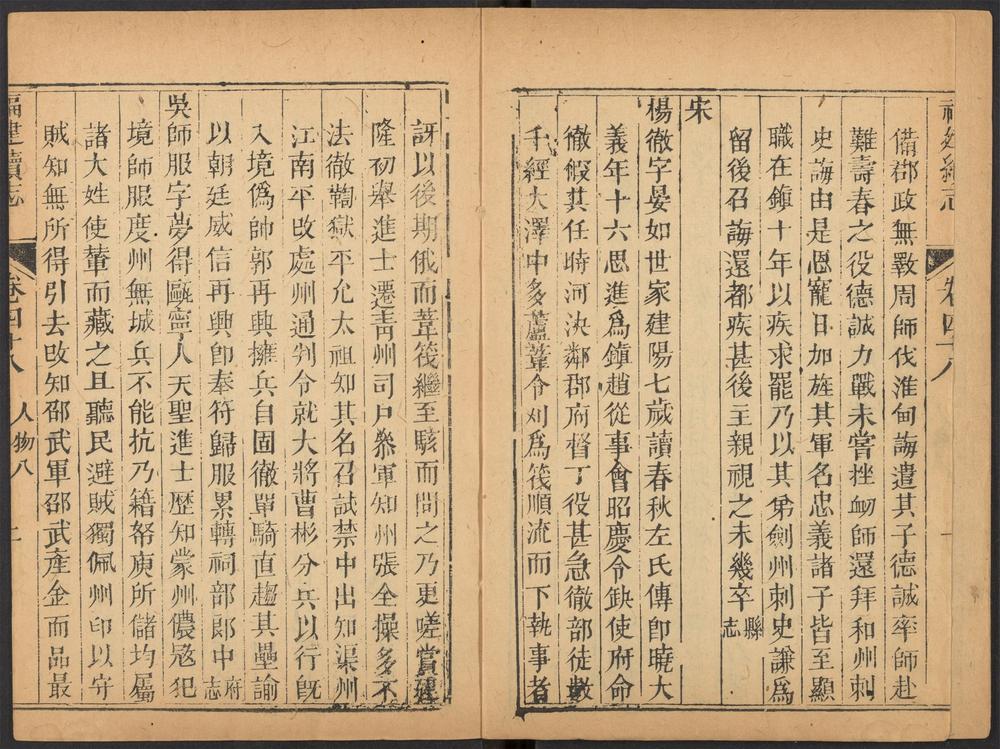 福建續志 卷四十八
備郡政無斁周師伐淮甸誨遣其子德誠率師赴
難壽春之役德誠力戰未嘗挫衂師還拜和州刺
史誨由是恩寵日加旌其軍名忠義諸子皆至顯
職在鎮十年以疾求罷乃以其弟劍州刺史謙爲
留後召誨還都疾甚後主親視之未幾卒 縣志
宋
楊徹字晏如世家建陽七歲讀春秋左氏傳卽曉大
義年十六思進爲鎮趙從事會昭慶令缺使府命
徹假其任時河決鄰郡府督丁役甚急徹部徒數
千經大澤中多蘆葦令刈爲筏順流而下執事者
訝以後期俄而葦筏繼至駭而問之乃更嗟賞建
隆初舉進士遷靑州司戶叅軍知州張全操多不
法徹鞫獄平允太祖知其名召試禁中出知渠州
江南平改處州通判令就大將曹彬分兵以行旣
入境僞帥郭再興擁兵自固徹單騎直趨其壘諭
以朝廷威信再興卽奉符歸服累轉祠部郎中 府志
吳師服字夢得甌寧人天聖進士歴知蒙州儂宼犯
境師服度州無城兵不能抗乃籍帑庾所儲均屬
諸大姓使輦而藏之且聽民避賊獨佩州印以守
賊知無所得引去改知邵武軍邵武產金而品最
福建續志 卷四十八 人物八